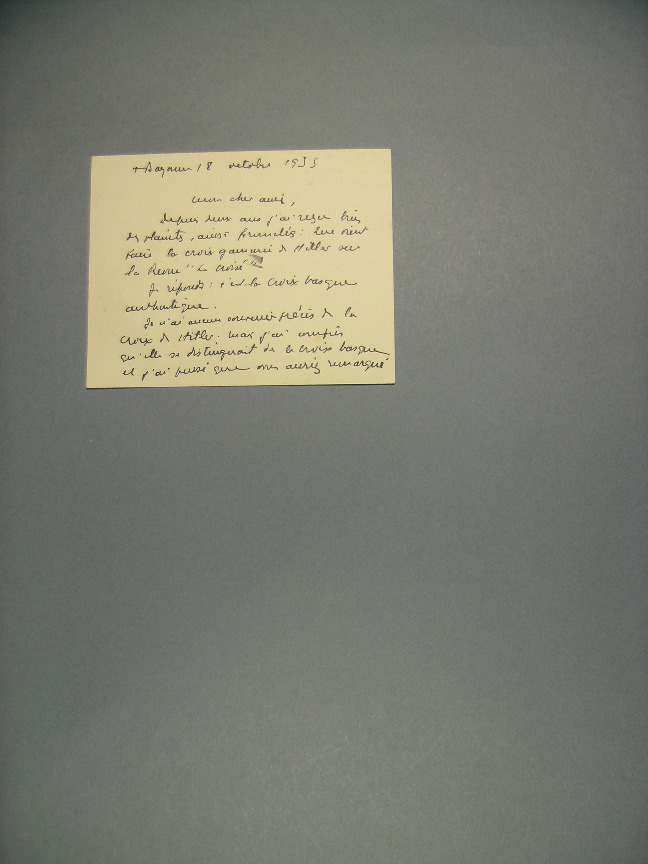 + Bayonne 18 octobre 1935
Mon cher ami,
Depuis deux ans j'ai reçu bien
des plaintes, ainsi formulées : que vient
faire la croix gammée de Hitler sur
la Revue "
Je réponds : c'est la croix basque
authentique.
Je n'ai aucun souvenir précis de la
croix de Hitler. mais j'ai compris
qu'elle se distinguait de la croix basque
et j'ai pensé que vous auriez remarqué